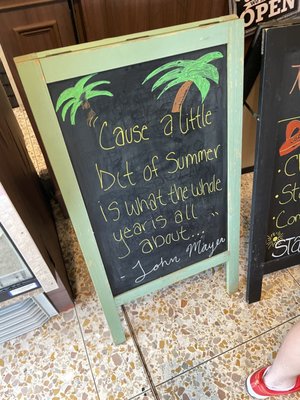 OPEN
"Cause a little
bit of Summer
is what the whole
year is all
about..."
- John Mayer